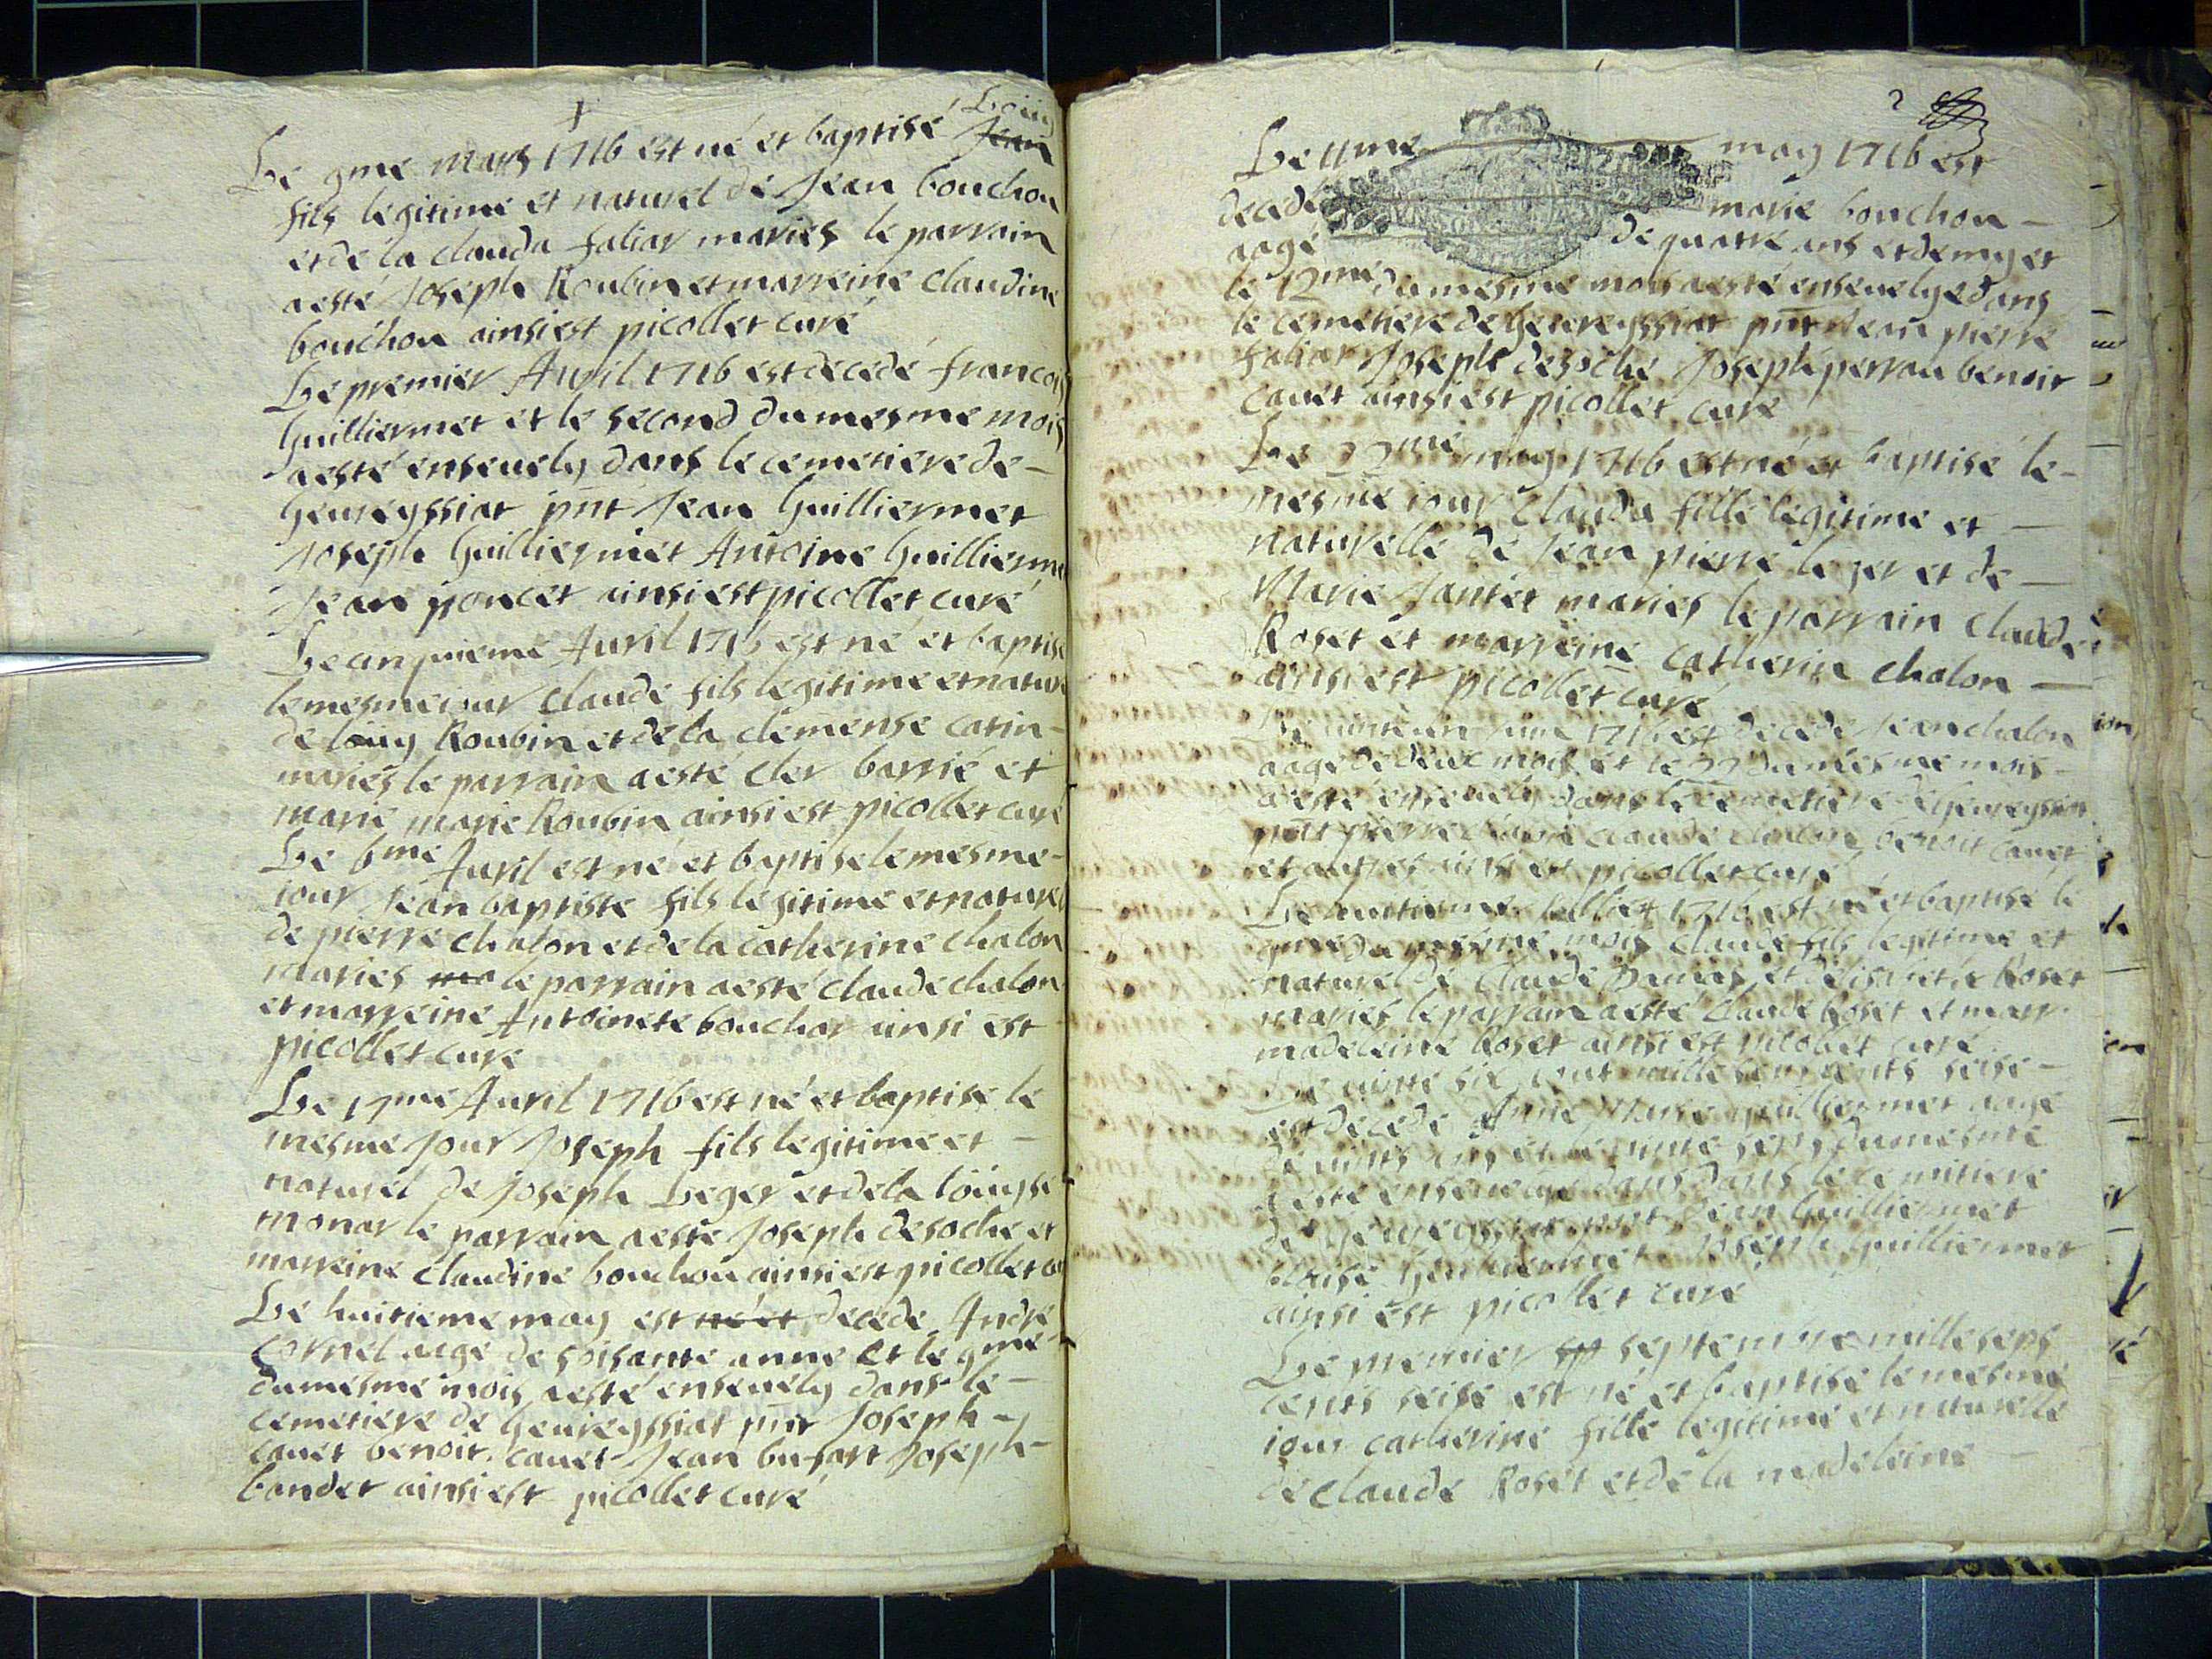 Le 9me Mars 1716 est né et baptisé Jean Loüis
fils legitime et naturel de Jean bouchon
et de la clauda faliar mariés le parrain
a esté Joseph Roubin et marreine Claudine
bouchon ainsi est picollet curé
Le premier Auril 1716 est decedé francois
Guilliermet et le second du mesme mois
a esté enseuely dans le cemetiere de
Geureyssiat pnt Jean Guilliermet
Joseph Guilliermet Antoine Guillierme
Jean poncet ainsi est picollet curé
Le cinquieme Auril 1716 est né et baptisé
le mesme iour Claude fils legitime et natur
de loüy Roubin et de la clemense carin
mariés le parrain a esté cler barrié et
marie marie Roubin ainsi est picollet curé
Le 6me Auril est né et baptise le mesme
iour Jean baptiste fils legitime et naturel
de pierre chalon et de la catherine chalon
mariés ma le parrain a esté claude chalon
et marreine Antoinete bouchar ainsi est
picollet cure
Le 17me Auril 1716 est né et baptise le
mesme Jour Joseph fils legitime et
naturel de Joseph Leger et de la loüyse
monar le parrain a esté Joseph desoche et
marreine Claudine bouchon ainsi est picollet cu
Le huitieme may est né et decede André
Cornel aagé de soisante anne et le 9me
du mesme mois a esté enseuely dans le
cemetiere de Geureyssiat pnt Joseph
cauet benoit cauet Jean bufart Joseph
bondet ainsi est picollet curé
2
Le 11me may 1716 est
decedé marie bouchon
aagé de quatre ans et demy et
le 12me du mesme mois a esté enseuelye dans
le cemetiere de Geureyssiat pnt Jean pierre
faliar Joseph desoche Joseph perrau benoit
cauet ainsi est picollet curé
Le 22me may 1716 est né et baptisé le
mesme iour Clauda fille legitime et
naturelle de Jean pierre leger et de
Marie Jantet mariés le parrain Claude
Roset et marreine catherine chalon
ainsi est picollet curé
Le uint un juin 1716 est decede Jean chalon
aagé de deux mois et le 22 du mesme mois
a esté enseuely dans le cemetiere de Geureyssiat
pnt pierre claude chalon benoit cauet
et autres ainsi est picollet curé
Le huitieme Juillet 1716 est né et baptisé le
9me du mesme mois Claude fils legitime et
naturel de Claude et de Roset
mariés le parrain a esté Claude Roset et marr
madeleine Roset ainsi est picollet curé
Le uinte six aout mille sept cents seise
est decede Anne Marie guilliermet aagé
de uints ans et le uinte sept du mesme
a esté enseuelye dans dans le cemitiere
de Geureyssiat pnt Jean Guilliermet
Guilliermet Joseph guilliermet
ainsi est picollet curé
Le premier sep septembre mille sept
cents seise est né et baptisé le mesme
iour catherine fille legitime et naturelle
de Claude Roset et de la madeleine